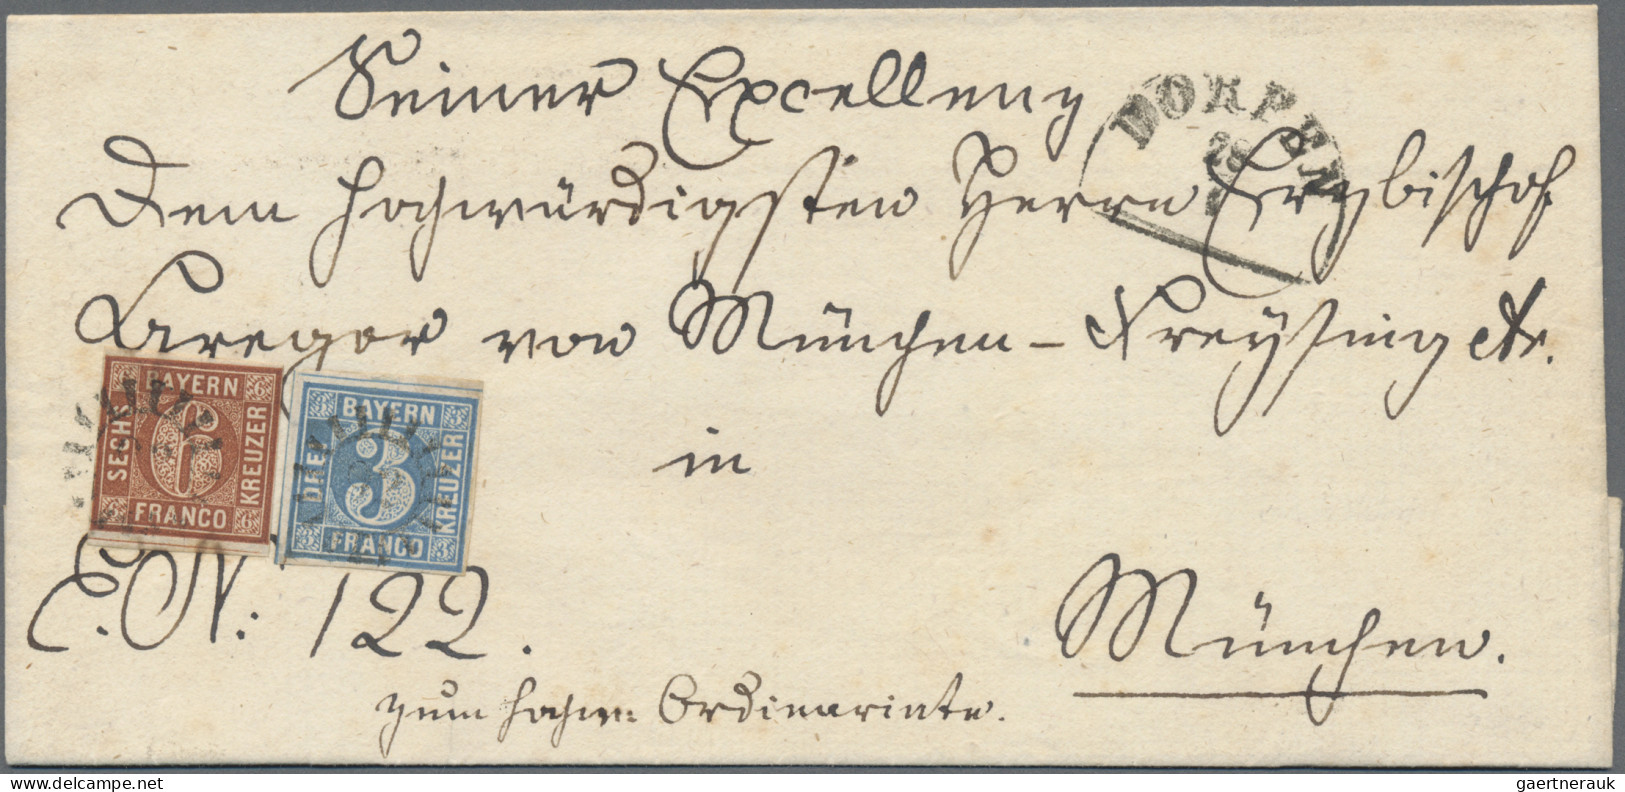 Seiner Excellenz
DORFEN
28
Dem hochwürdigsten Herrn Erzbischof
Gregor von München-Freysing etc.
BAYERN
SECHS
6
KREUZER
FRANCO
BAYERN
DREI
3
KREUZER
FRANCO
in
E. N: 122.
München.
zum hochw: Ordinariate.
gaertnerauk